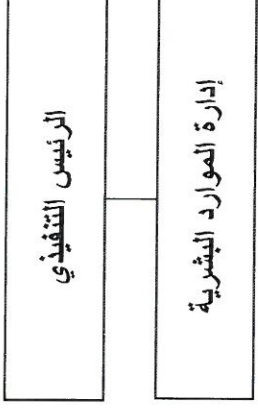 الرئيس التنفيذي
إدارة الموارد البشرية